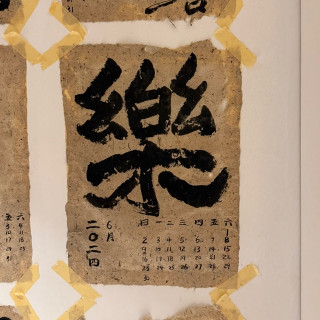 樂
6月
二〇二四
日 一 二 三 四 五 六
1
2 3 4 5 6 7 8
9 10 11 12 13 14 15
16 17 18 19 20 21 22
23 24 25 26 27 28 29
30
五 六
3 4
10 11
17 18
24 25
31